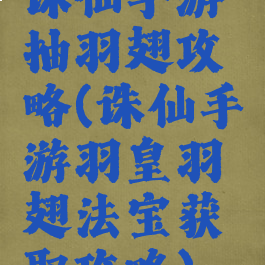 诛仙手游
抽羽翅攻
略(诛仙手
游羽皇羽
翅法宝获
取攻略)